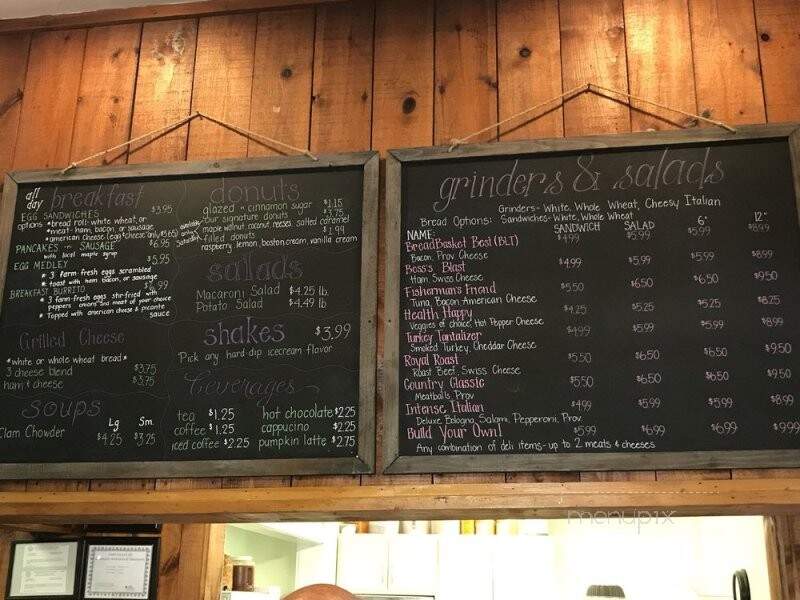 all day breakfast
EGG SANDWICHES $3.95
options * bread roll-white, wheat, or
* meat- ham, bacon, or sausage
* american cheese (egg + cheese only $3.65)
PANCAKES w SAUSAGE $6.95
with local maple syrup
EGG MEDLEY $5.95
* 3 farm fresh eggs scrambled
* toast with ham, bacon, or sausage
BREAKFAST BURRITO
* 3 farm-fresh eggs stir-fried with
peppers onions and meat of your choice
* Topped with american cheese & picante
sauce
Grilled Cheese
*white or whole wheat bread*
3 cheese blend $3.75
ham & cheese $3.75
soups
Lg Sm
Clam Chowder $4.25 $3.25
donuts
glazed * cinnamon sugar $1.15
our signature donuts
maple walnut, coconut, reeses, salted caramel
filled donuts $1.99
raspberry, lemon, boston cream, vanilla cream
salads
Macaroni Salad $4.25 lb
Potato Salad $4.49 lb
shakes $3.99
Pick any hard-dip icecream flavor
beverages
tea $1.25 hot chocolate $2.25
coffee $1.25 cappucino $2.25
iced coffee $2.25 pumpkin latte $2.75
grinders & salads
Grinders- White, Whole Wheat, Cheesy Italian
Bread Options: Sandwiches- White, Whole Wheat
NAME: SANDWICH SALAD 6" 12"
BreadBasket Best (BLT) $4.99 $5.99 $5.99 $8.99
Bacon, Prov Cheese
Boss's Blast $4.99 $5.99 $5.99 $8.99
Ham, Swiss Cheese
Fisherman's Friend $5.50 $6.50 $6.50 $9.50
Tuna, Bacon American Cheese
Health Happy $4.25 $5.25 $5.25 $8.25
Veggies of choice, Hot Pepper Cheese
Turkey Tantalizer $4.99 $5.99 $5.99 $8.99
Smoked Turkey, Cheddar Cheese
Royal Roast $5.50 $6.50 $6.50 $9.50
Roast Beef, Swiss Cheese
Country Classic $5.50 $6.50 $6.50 $9.50
Meatballs, Prov
Intense Italian $4.99 $5.99 $5.99 $8.99
Deluxe Bologna, Salami, Pepperoni, Prov
Build Your Own! $5.99 $6.99 $6.99 $9.99
Any combination of deli items- up to 2 meats & cheeses
menupix